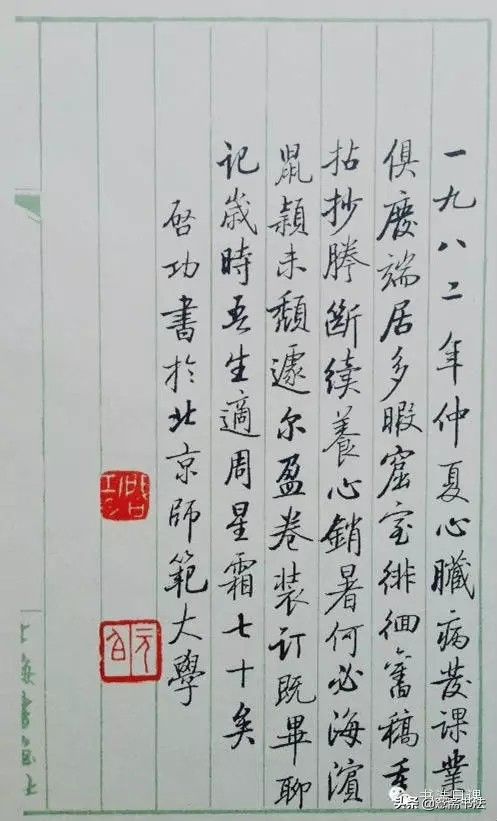 一九八二年仲夏心臟病發課業
俱廢端居多暇窟室徘徊舊稿重
拈抄謄斷續養心銷暑何必海濱
鼠穎未頹遽尔盈卷装订既畢聊
记歲時吾生適周星霜七十矣
啓功書於北京師範大學
啟功
元白
上海書画社
书法日课
头条@
书法